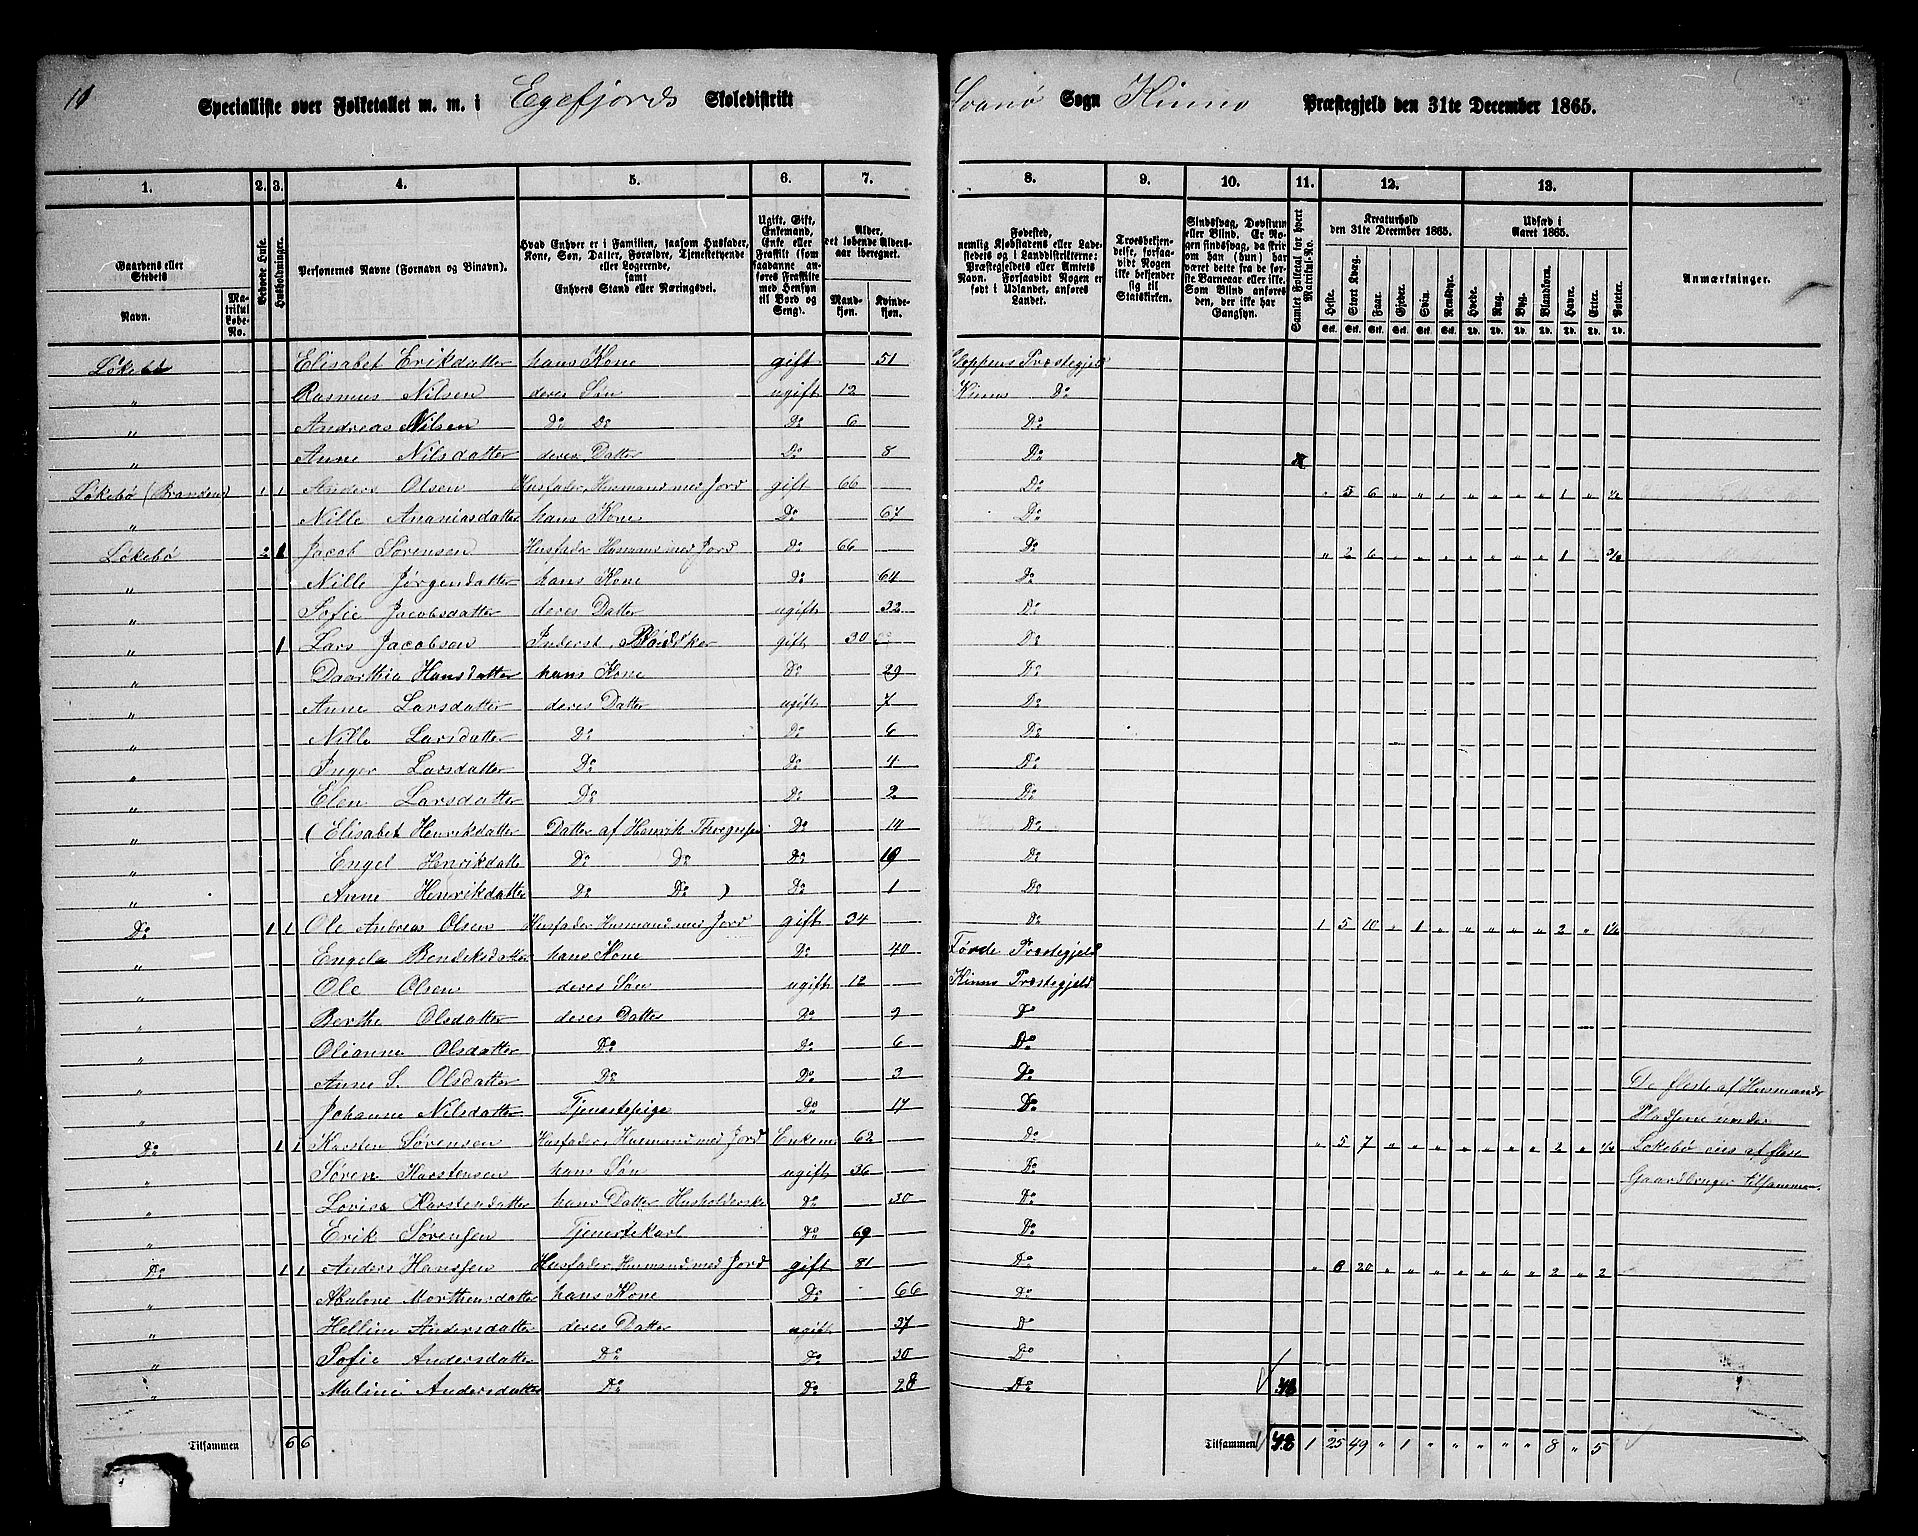 Specialliste over Folketallet m. m. i Egefjords Skoledistrikt Svanø Sogn Kinns Præstegjeld den 31te December 1865.
1. 2. 3. 4. 5. 6. 7. 8. 9. 10. 11. 12. 13.
Gaardens eller Stedets
Navn.
Matrikul Løbe-No.
Beboede Huse.
Husholdninger.
Personernes Navne (Fornavn og Binavn).
Hvad Enhver er i Familien, saasom Husfader, Kone, Søn, Datter, Forældre, Tjenestetyende eller Logerende, samt Enhvers Stand eller Næringsvei.
Ugift, Gift, Enkemand, Enke eller Fraskilt (som saadanne anføres Fraskilte med Hensyn til Bord og Seng).
Alder, det løbende Aldersaar iberegnet.
Mandkjøn. Kvindekjøn.
Fødested, nemlig Kjøbstadens eller Ladestedets og i Landdistrikterne: Præstegjeldets eller Amtets Navn. Forsaavidt Nogen er født i Udlandet, anføres Landet.
Troesbekjendelse, forsaavidt Nogen ikke bekjender sig til Statskirken.
Sindssvag, Døvstum eller Blind. Er Nogen sindssvag, da skrives om han (hun) har været dette fra de første Barneaar eller ikke. Som Blind anføres den, der ikke har Gangsyn.
Samlet Folketal for hvert Matrikul-No.
Kreaturhold den 31te December 1865.
Heste. Stort Kvæg. Faar. Gjeder. Svin. Rensdyr.
Udsæd i Aaret 1865.
Hvede. Rug. Byg. Blandkorn. Havre. Erter. Poteter.
Anmærkninger.
Løkebø Elisabet Eriksdatter hans Kone gift 51 Gloppens Præstegjeld
" Rasmus Nilsen deres Søn ugift 12 Kinns Do
" Andreas Nilsen Do Do Do 6 Do
" Anne Nilsdatter deres Datter Do 8 Do
Løkebø (Brandsnes) 1 1 Anders Olsen Husfader, Husmand med Jord gift 66 Do " 5 6 " " " " " " " 1 "
" Nille Ananiasdatter hans Kone Do 67 Do
Løkebø 2 1 Jacob Sørensen Husfader Husmand med Jord Do 66 Do " 2 6 " " " " " " " 1
" Nille Jørgensdatter hans Kone Do 64 Do
" Sofie Jacobsdatter deres Datter ugift 32 Do
" 1 Lars Jacobsen Inderst, gift 30 Do
" Daarthia Hansdatter hans Kone Do 29 Do
" Anne Larsdatter deres Datter ugift 7 Do
" Nille Larsdatter Do Do 6 Do
" Inger Larsdatter Do Do 4 Do
" Elen Larsdatter Do Do 2 Do
" (Elisabet Henriksdatter Datter af Henrik Do Do
" Engel Henrikdatte Do Do Do Do
" Anne Henrikdatter Do Do ) Do 1 Do
Do 1 1 Ole Andreas Olsen Husfader Husmand med Jord gift 34 Do 1 5 10 " 1 " " " " " 2 "
" Engela Bendiksdatter hans Kone Do 40 Førde Præstegjeld
" Ole Olsen deres Søn ugift 12 Kinns Præstegjeld
" Berthe Olsdatter deres Datter Do 9 Do
" Olianna Olsdatter Do Do 6 Do
" Anne S. Olsdatter Do Do 3 Do
De fleste af Husmands
" Johanne Nilsdatter Tjenestepige Do 17 Do
Pladsene under
Do 1 1 Karsten Sørensen Husfader, Husmand med Jord Enkem 62 Do " 5 7 " " " " " " " 2 "
Løkebø eies af flere
" Søren Karstensen hans Søn ugift 36 Do
Gaardbruger tilsammen.
" Lovise Karstensdatter hans Datter Husholderske Do 30 Do
" Erik Sørensen Tjenestekarl Do 69 Do
Do 1 1 Anders Hansen Husfader Husmand med Jord gift 81 Do " 8 20 " " " " " " " 2 " 2
" Abalone Morthensdatter hans Kone Do 66 Do
" Helline Andersdatter deres Datter ugift 37 Do
" Sofie Andersdatter Do Do 30 Do
" Maline Andersdatter Do Do 28 Do
Tilsammen 6 6 Tilsammen 48 1 25 49 " 1 " " " " " 8 " 5